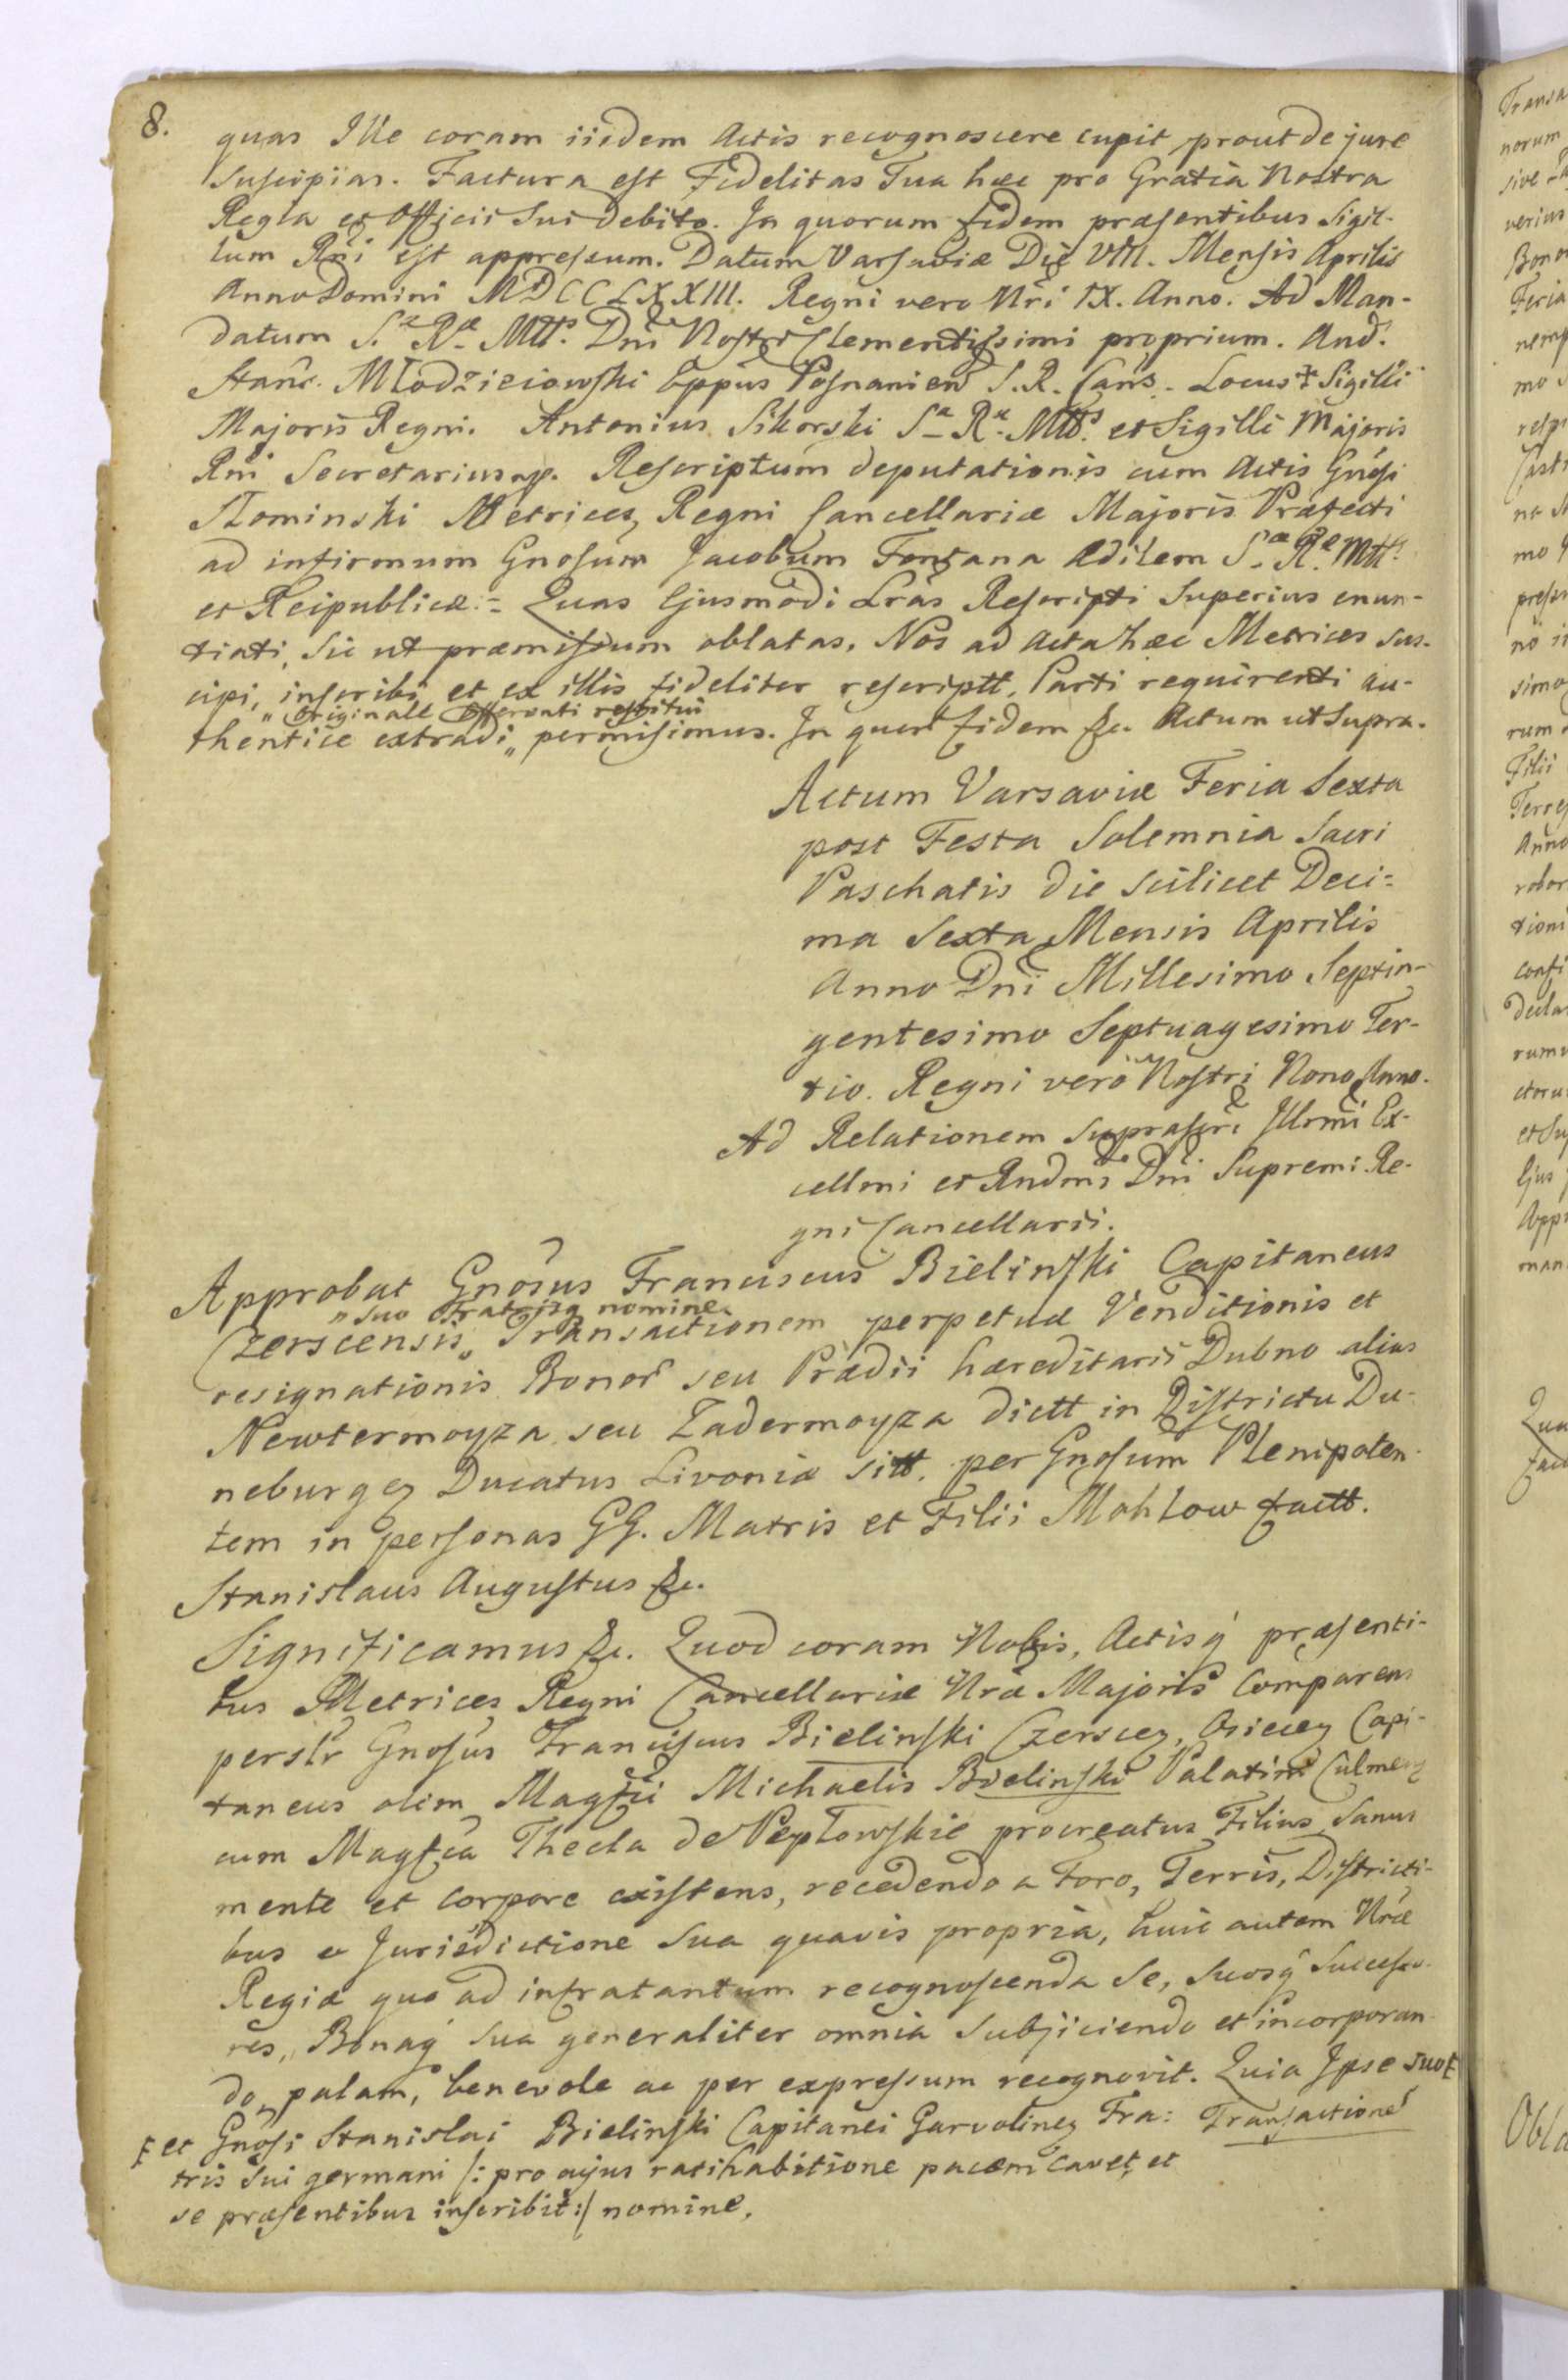 8.
quas Ille coram iisdem Actis recognoscere cupit prout de jure
suscipias. Factura est Fidelitas Tua hæc pro Gratia Nostra
Regia et Officii sui debito. In quorum fidem præsentibus Sigil-
lum Rni est appressum. Datum Varsaviæ Die VIII. Mensis Aprilis
Anno Domini MDCCLXXIII. Regni vero Nri IX. Anno. Ad Man-
datum S.æ R.æ Mtt.s Dni Nostri Clementissimi proprium. And.
Stanis. Młodzieiowski Eppus Posnanien S. R. Canc. Locus + Sigilli
Majoris Regni. Antonius Sikorski S.æ R.æ Mtt.s et Sigilli Majoris
Rni Secretarius mp. Rescriptum deputationis cum Actis Gnosi
Słominski Metrices Regni Cancellariæ Majoris Præfecti
ad infirmum Gnosum Jacobum Fontana Ædilem S.æ R.æ Mtt.s
et Reipublicæ. = Quas Ejusmodi Lras Rescripti superius enun-
tiati, sic ut præmissum oblatas, Nos ad Acta hæc Metrices sus-
cipi, inscribi et ex illis fideliter rescriptt. Parti requirenti au-
" originale Offerenti restitui
thentice extradi " permisimus. In quor fidem &c. Actum ut supra.
Actum Varsaviæ Feria Sexta
post Festa Solemnia Sacri
Paschatis die scilicet Deci=
ma Sexta Mensis Aprilis
Anno Dni Millesimo Septin-
gentesimo Septuagesimo Ter-
tio. Regni vero Nostri Nono Anno.
Ad Relationem suprascri Illrmi Ex-
cellmi et Rndmi Dni Supremi Re-
gni Cancellarii.
Approbat Gnosus Franciscus Bielinski Capitaneus
" suo Fratrisq nomine
Czerscensis " Transactionem perpetuæ Venditionis et
resignationis Bonor seu Prædii hæreditarii Dubno alias
Newtermoyza seu Zadermoyza dictt in Districtu Du-
neburgez Ducatus Livoniæ sitt. per Gnosum Plenipoten-
tem in personas GG. Matris et Filii Mohlow factt.
Stanislaus Augustus &c.
Significamus &c. Quod coram Nobis, Actisq præsenti-
bus Metrices Regni Cancellariæ Nræ Majoris Comparens
perslr Gnosus Franciscus Bielinski Czerscez, Osiecez Capi-
taneus olim Magfci Michaelis Bielinski Palatini Culmenz
cum Magfca Thecla de Pepłowskie procreatus Filius, sanus
mente et corpore existens, recedendo a Foro, Terris, Districti-
bus e Jurisdictione sua quavis propria, huic autem Nræ
Regiæ quo ad infratantum recognoscenda se, suosq Successo-
res, Bonaq sua generaliter omnia subjiciendo et incorporan-
do, palam, benevole ac per expressum recognovit. Quia Ipse suo Ŧ
Ŧ et Gnosi Stanislai Bielinski Capitanei Garvolinez Fra: Transactione
tris sui germani /: pro cujus ratihabitione pacem cavet, et
se præsentibus inscribit :/ nomine.